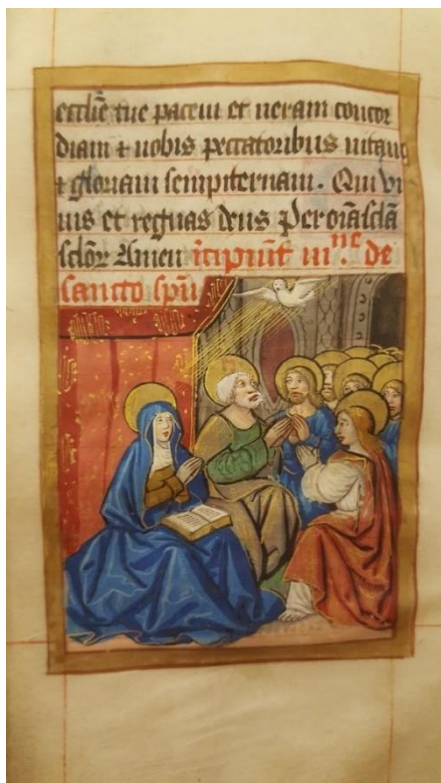 ecclīe tue pacem et ueram concor
diam ⁊ nobis peccatoribus uitam
⁊ gloriam sempiternam. Qui vi
uis et regnas deus Per oīa scła
scłoꝝ Amen incipiūt mne. de
sancto spū